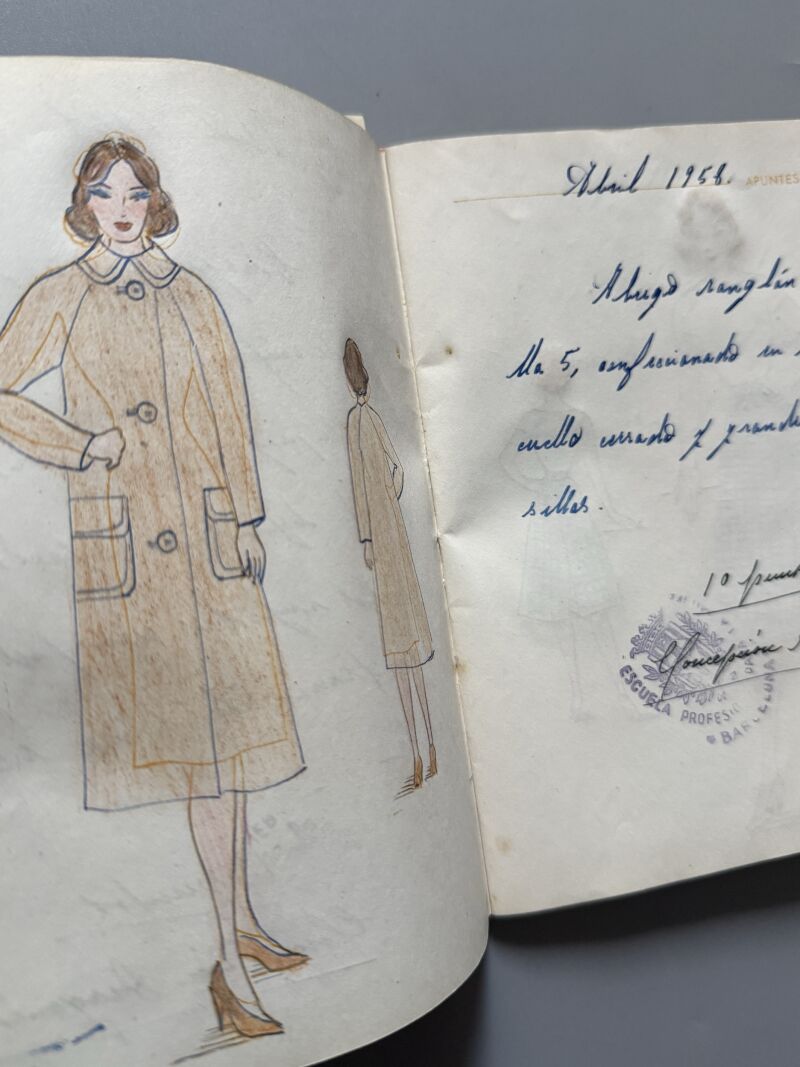 Abril 1958.
APUNTES
Abrigo ranglán
lla 5, confeccionado en
cuello cerrado y grand
sillos.
10 pun
Concepción
ESCUELA PROFESI
BARCELONA